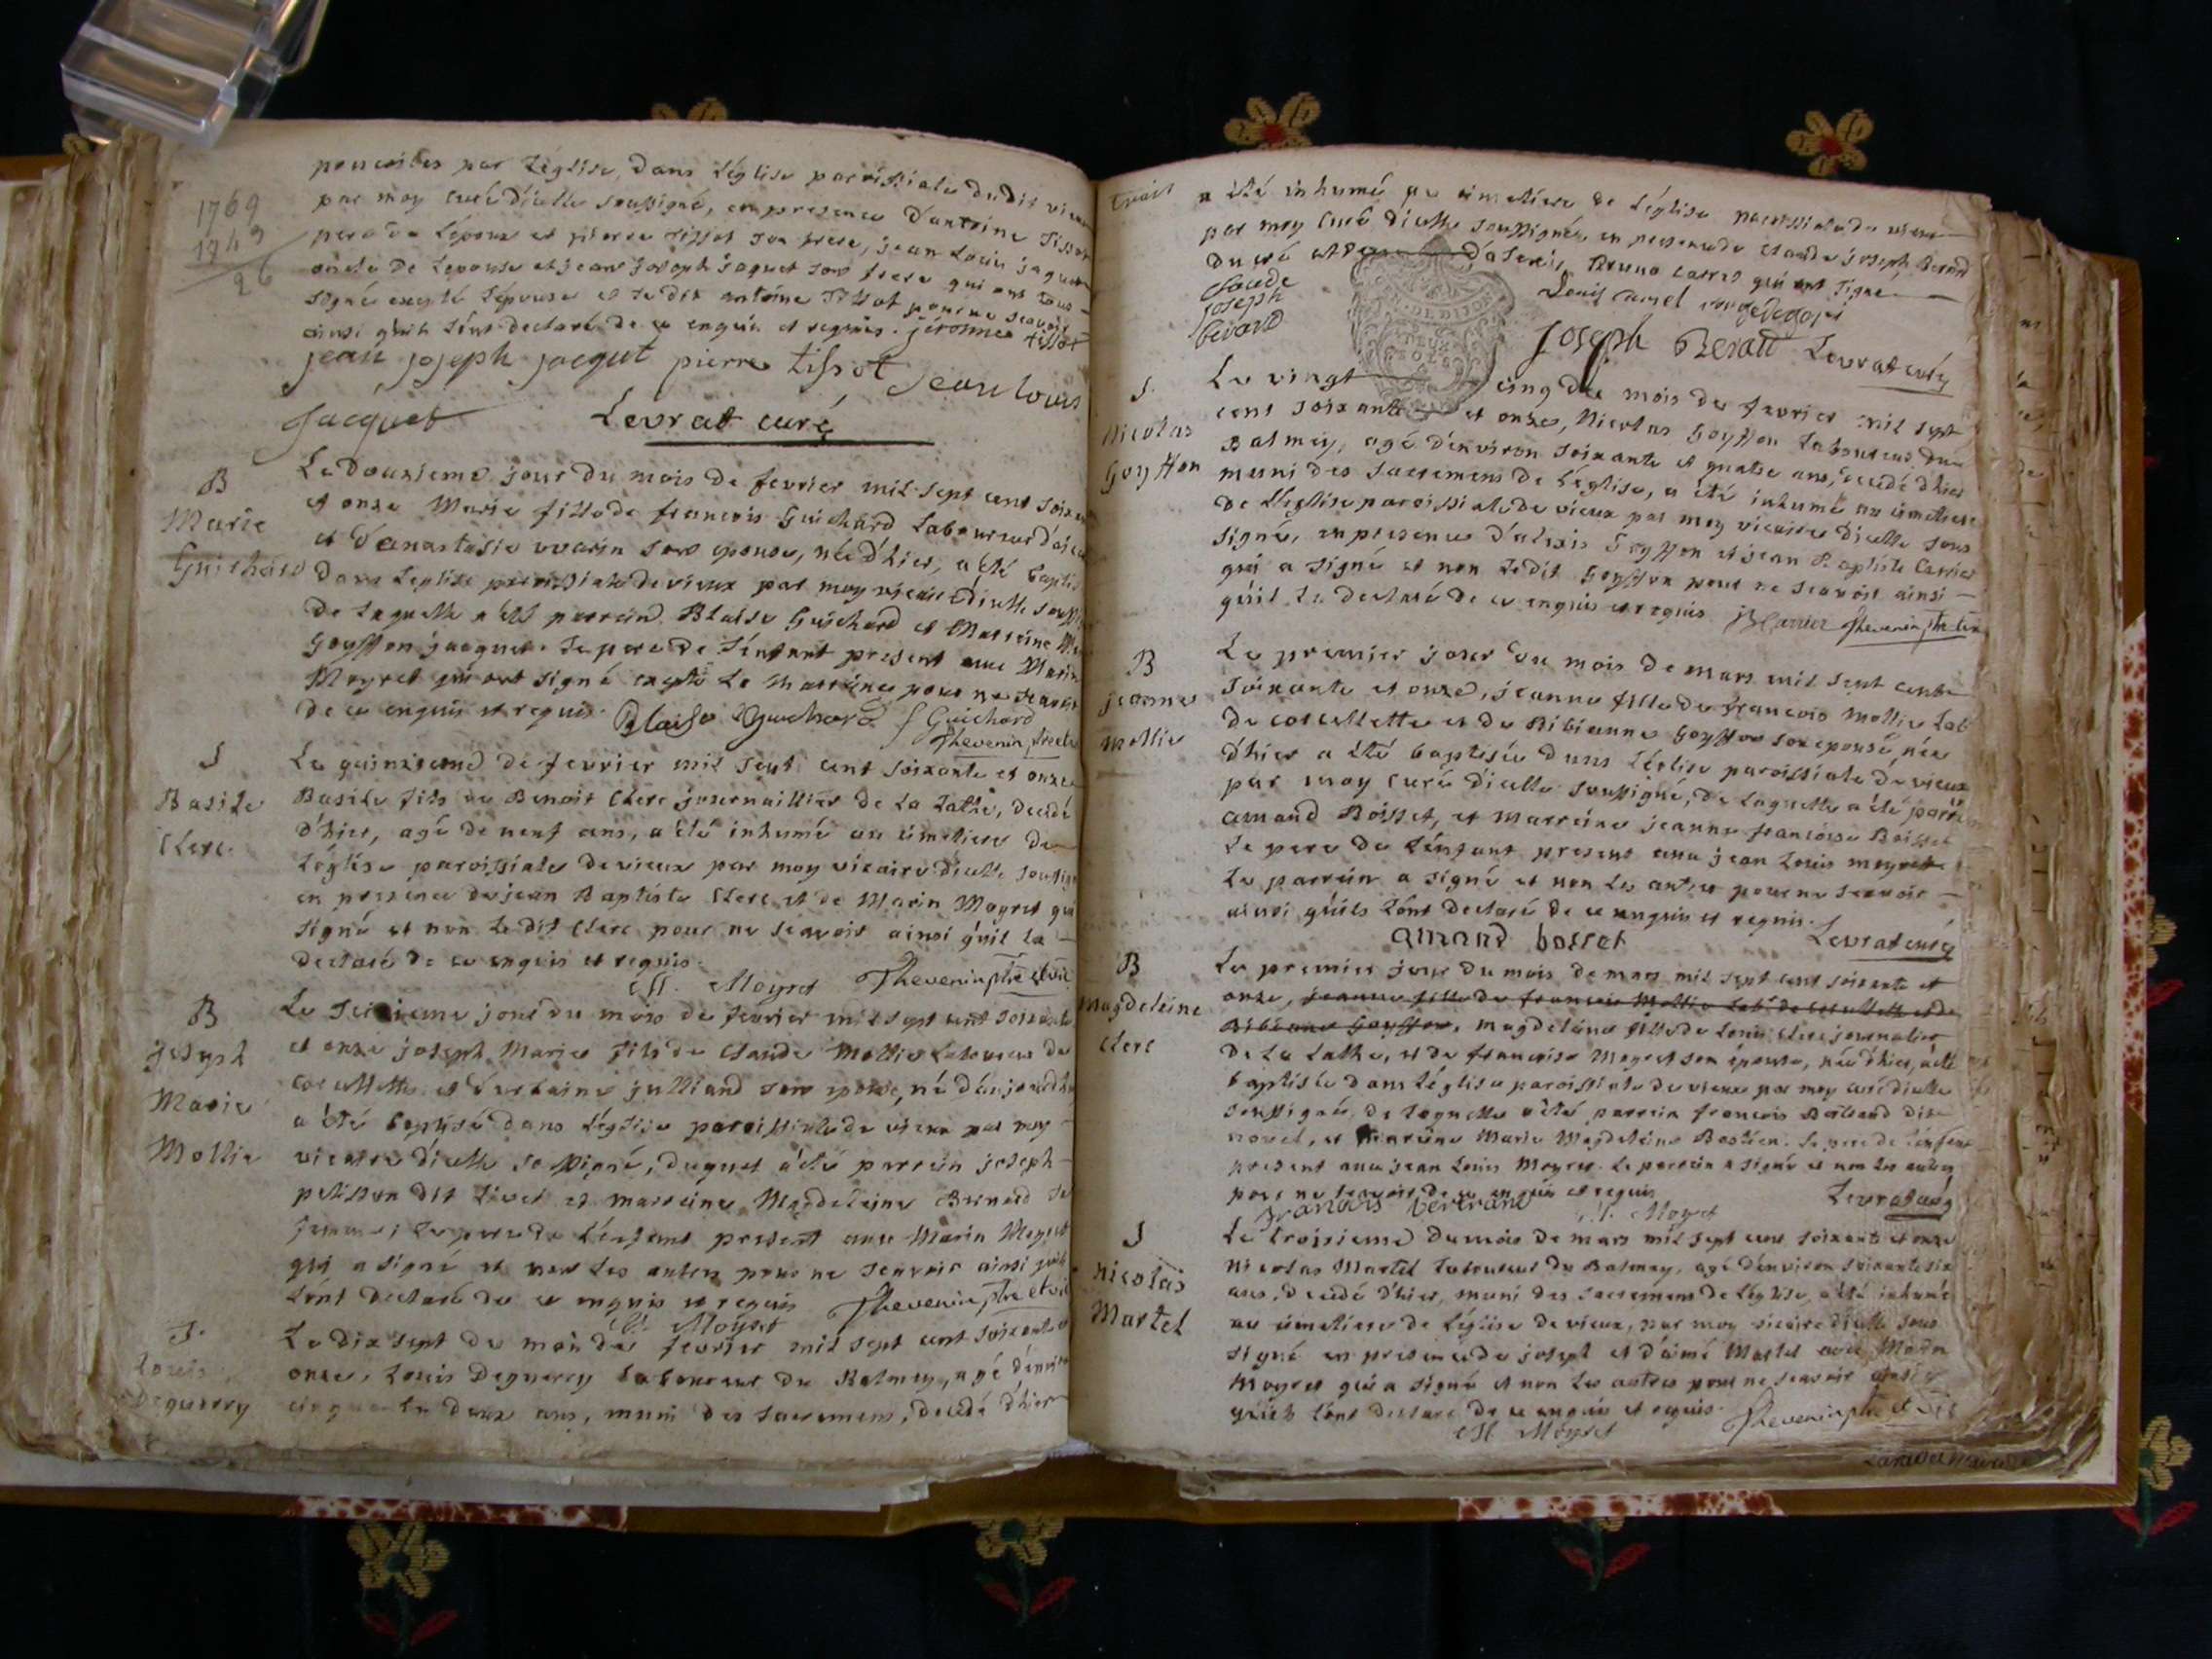 1769
1743
26
prescrites par l'église, dans l'église parroissiale dudit vieux
par moy curé d'icelle soussigné, en presence d'antoine Tissot
pere de l'époux et pierre tissot son frere, jean Louis jaquet
oncle de l'epouse et jean joseph jaquet son frere qui ont tous
signé excepté l'épouse et ledit antoine Tissot pour ne scavoir
ainsi qu'ils l'ont declaré de ce enquis et requis. jérosme tissot
jean joseph jacqut pierre tissot jean louis
jacquet Levrat curé
B
Marie
Guichard
Le douzieme jour du mois de fevrier mil sept cent soixante
et onze Marie fille de francois Guichard Laboureur
et d'anastasie vuarin son epouse, née d'hier, a été baptisée
dans l'eglise parroissiale de vieux par moy vicaire d'icelle soussigné
de laquelle a été parrein Blaise Guichard et Marreine
Goyffon jacquet. le pere de l'enfant present avec Marin
Moyret qui ont signé excepté la marreine pour ne scavoir
de ce enquis et requis. Blaise Guichard f Guichard
Thevenin ptre et vic
S
Basile
Clerc
Le quinzieme de fevrier mil sept cent soixante et onze
Basile fils de Benoit Clerc journaillier de la Lathe, decedé
d'hier, agé de neuf ans, a été inhumé au cimetiere de
l'église paroissiale de vieux par moy vicaire d'icelle soussigné
en presence de jean Baptiste Clerc et de Marin Moyret qui
signé et non ledit Clerc pour ne scavoir ainsi qu'il l'a
declaré de ce enquis et requis.
M. Moyret Thevenin ptre et vic
B
joseph
Marie
Mollie
Le seizieme jour du mois de fevrier mil sept cent soixante
et onze joseph Marie fils de Claude Mollie Laboureur de
corcellette et d'urbaine julliand son epouse, né d'aujourd'hui
a été baptisé dans l'église paroissiale de vieux par moy
vicaire d'icelle soussigné, duquel a été parrein joseph
pelisson dit Livet et marreine Magdeleine Bernard sa
femme, le pere de l'enfant present avec Marin Moyret
qui a signé et non les autres pour ne scavoir ainsi qu'ils
l'ont declaré de ce enquis et requis Thevenin ptre et vic
M. Moyret
S.
Louis
Deguerry
Le dix sept du mois de fevrier mil sept cent soixante et
onze, Louis Deguerry Laboureur du Balmey, agé d'environ
cinquante deux ans, muni des sacremens, decedé d'hier
a été inhumé au cimetiere de l'église paroissiale de vieux
par moy curé d'icelle soussigné, en presence de Claude joseph Berard
d'alexis, Bruno Carrel qui ont signé
Claude
joseph
berard
Joseph Berard Levrat curé
S.
Nicolas
Goyffon
Le vingt cinq du mois de fevrier mil sept
cent soixante et onze, Nicolas Goyffon Laboureur du
Balmey, agé d'environ soixante et quatre ans, decedé d'hier
muni des sacremens de l'église, a été inhumé au cimetiere
de l'eglise paroissiale de vieux par moy vicaire d'icelle sous
signé, en presence d'alexis Goyffon et jean Baptiste Carrier
qui a signé et non ledit Goyffon pour ne scavoir ainsi
qu'il l'a declaré de ce enquis et requis JB Carrier Thevenin ptre et vic
B
jeanne
Mollie
Le premier jour du mois de mars mil sept cent
soixante et onze, jeanne fille de francois Mollie Lab
de corcellette et de Bibianne Goyffon son epouse, née
d'hier a été baptisée dans l'église paroissiale de vieux
par moy curé d'icelle soussigné, de laquelle a été parrein
amand Boisset, et marreine jeanne francoise Boisset
Le pere de l'enfant present avec jean Louis moyret
Le parrein a signé et non les autres pour ne scavoir
ainsi qu'ils l'ont declaré de ce enquis et requis.
amand bosset Levrat curé
B
Magdeleine
Clerc
Le premier jour du mois de mars mil sept cent soixante et
onze, jeanne fille de francois Mollie Labr de corcellette et de
Bibianne Goyffon, magdeleine fille de Louis Clerc journalier
de la Lathe, et de francoise Moyret son épouse, née d'hier, a été
baptisée dans l'église paroissiale de vieux par moy curé d'icelle
soussigné, de laquelle a été parrein francois Bertrand dit
et marreine Marie Magdeleine Bastien. le pere de l'enfant
present avec jean Louis Moyret. Le parrein a signé et non les autres
pour ne scavoir de ce enquis et requis Levrat curé
francois bertrand M. Moyret
S
Nicolas
Martel
Le troisieme du mois de mars mil sept cent soixante et onze
Nicolas Martel Laboureur du Balmey, agé d'environ soixante six
ans, decedé d'hier, muni des sacremens de l'église, a été inhumé
au cimetiere de l'église de vieux, par moy vicaire d'icelle sous
signé en presence de joseph et d'aimé Martel avec Marin
Moyret qui a signé et non les autres pour ne scavoir ainsi
qu'ils l'ont declaré de ce enquis et requis. Thevenin ptre et vic
M. Moyret